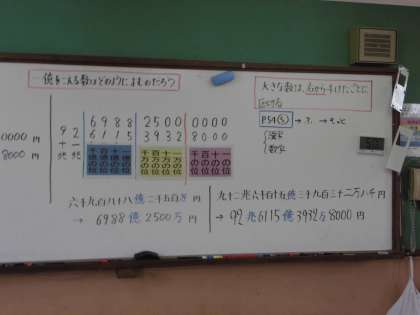 億をこえる数はどのようによむのだろう
大きな数は、右から4けたごとに
区切る
0000 円
8000 円
6988 2500 0000
92 6115 3932 8000
十兆 一兆
千億の位 百億の位 十億の位 一億の位
千万の位 百万の位 十万の位 一万の位
千の位 百の位 十の位 一の位
漢字
数字
六千九百八十八億二千五百万円
→ 6988億2500万円
九十二兆六千百十五億三千九百三十二万八千円
→ 92兆6115億3932万8000円